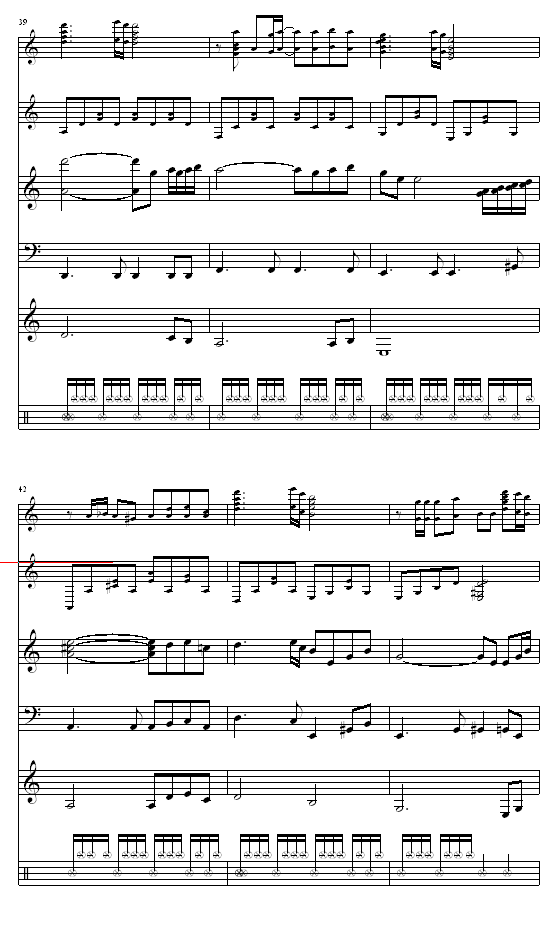 39
42